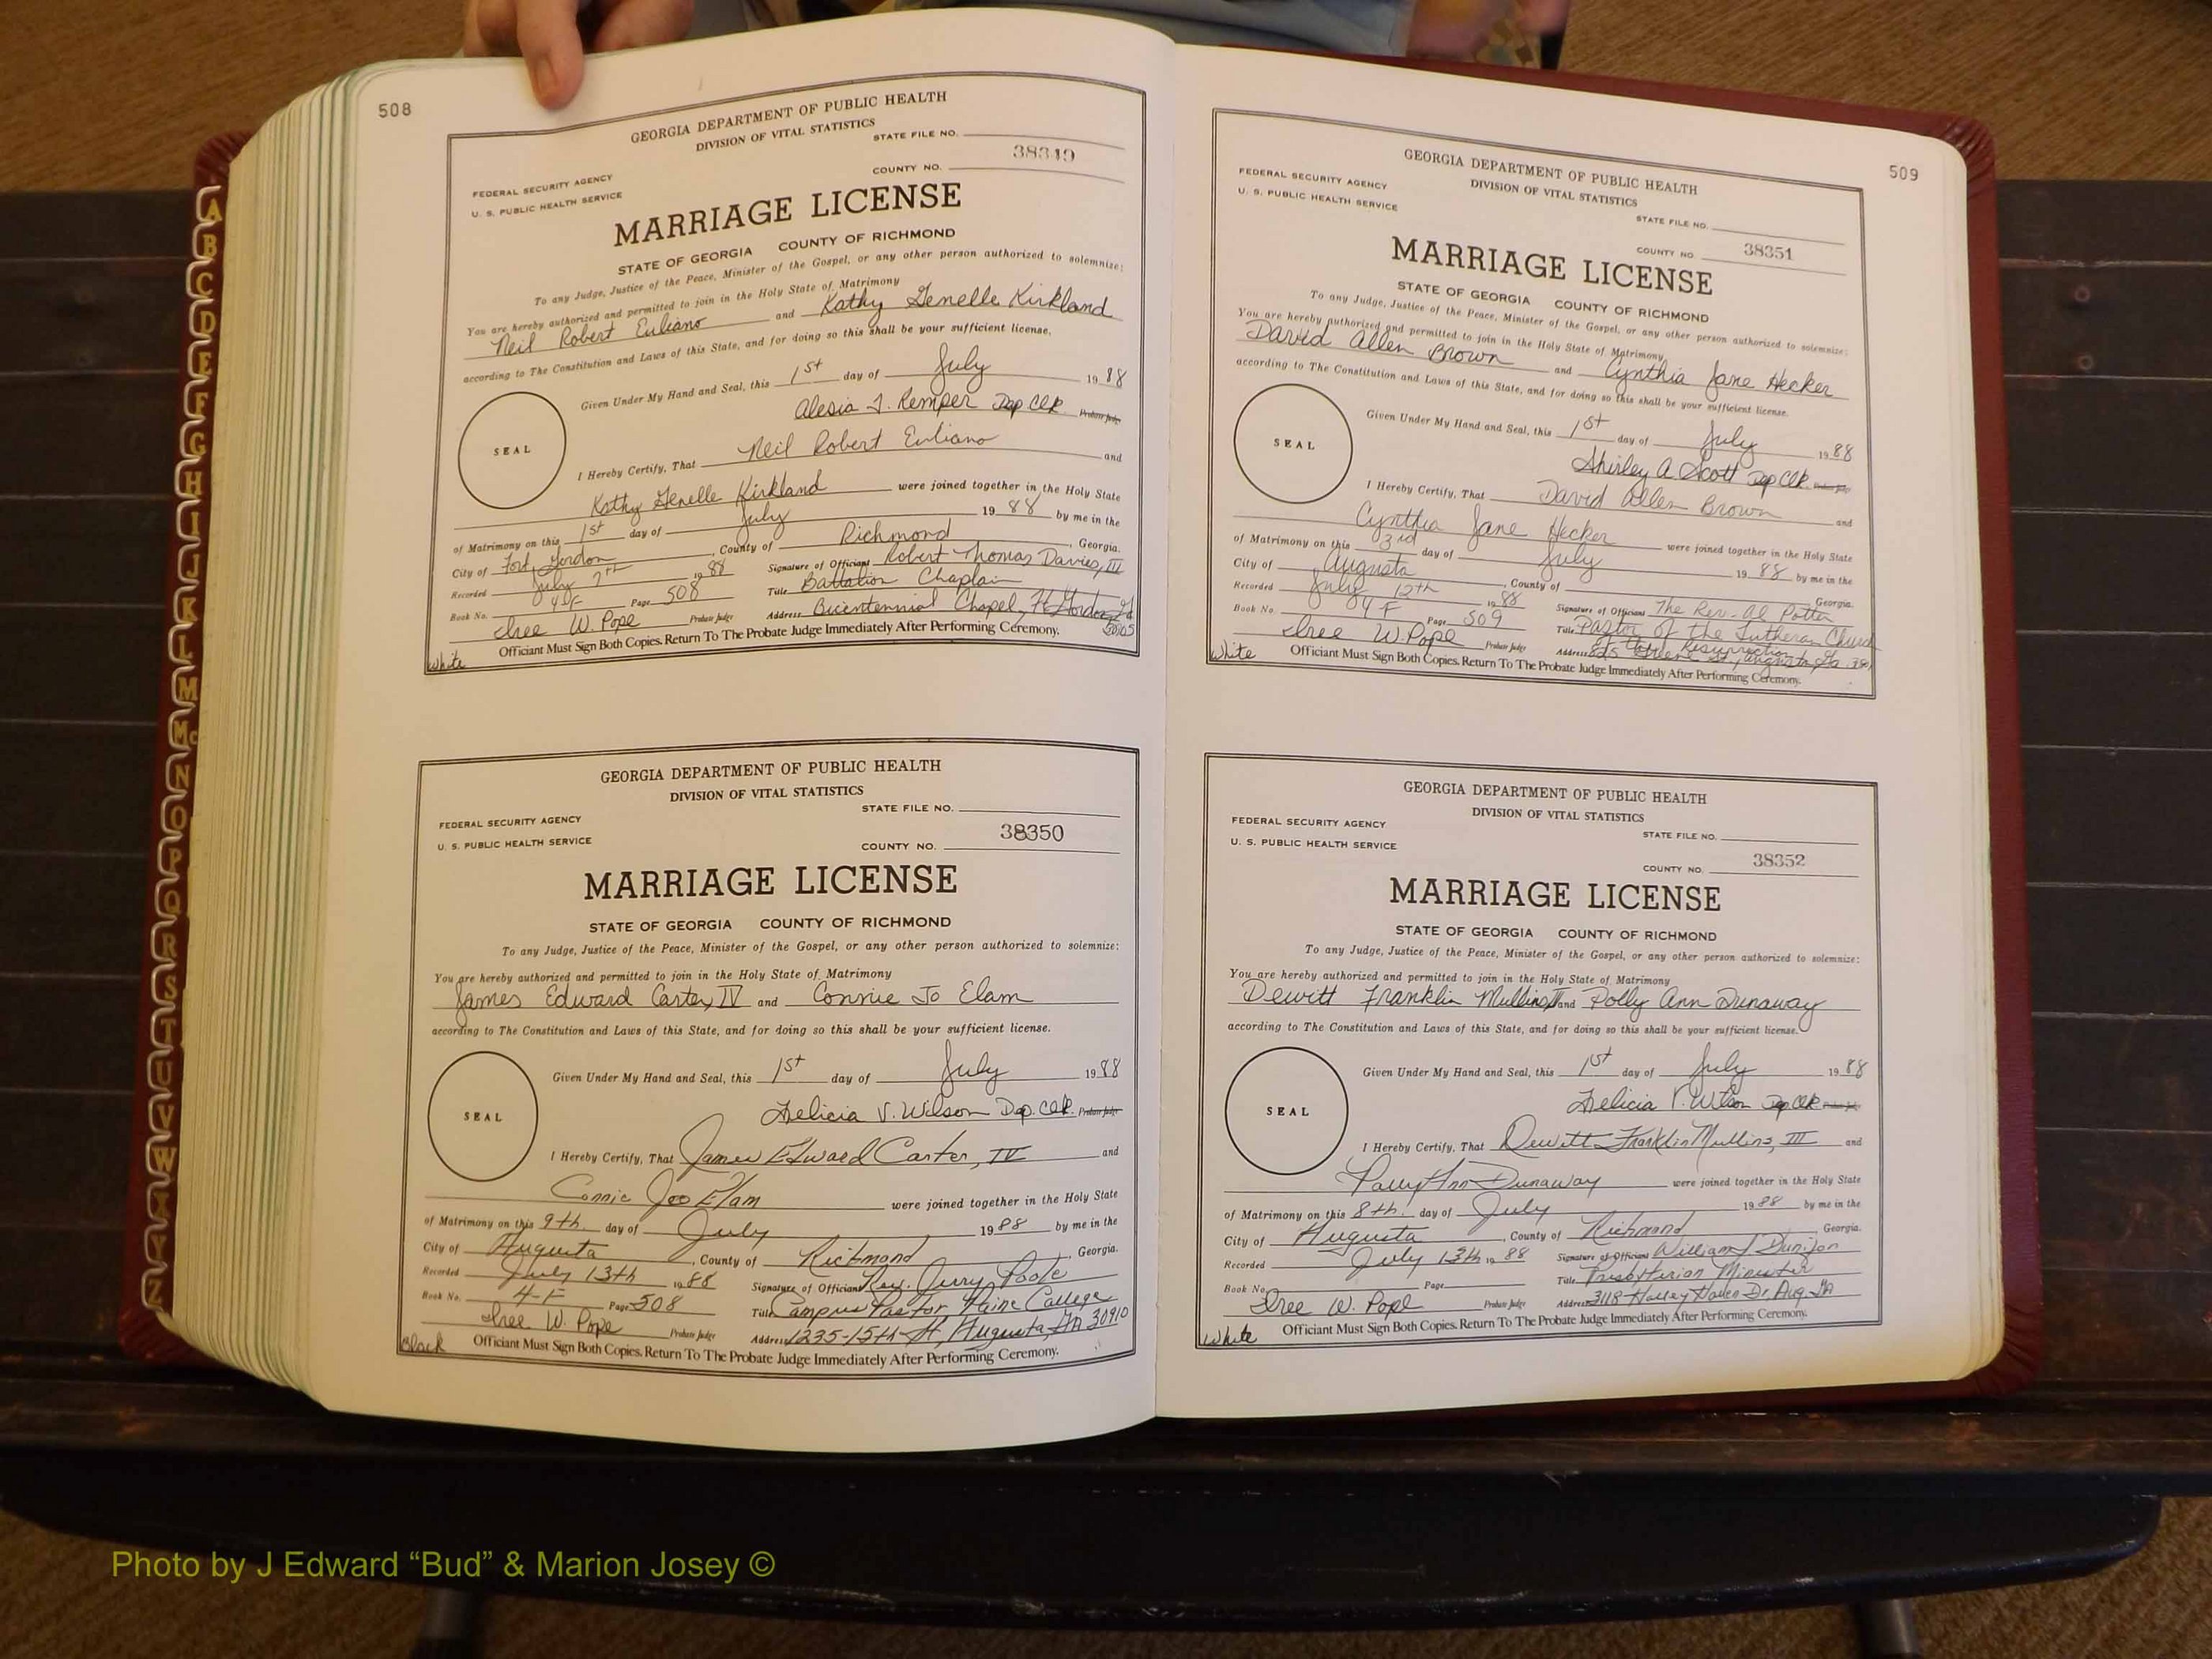 508
GEORGIA DEPARTMENT OF PUBLIC HEALTH
DIVISION OF VITAL STATISTICS
STATE FILE NO.
38349
COUNTY NO.
FEDERAL SECURITY AGENCY
U. S. PUBLIC HEALTH SERVICE
MARRIAGE LICENSE
STATE OF GEORGIA COUNTY OF RICHMOND
To any Judge, Justice of the Peace, Minister of the Gospel, or any other person authorized to solemnize:
You are hereby authorized and permitted to join in the Holy State of Matrimony
Neil Robert Euliano and Kathy Genelle Kirkland
according to The Constitution and Laws of this State, and for doing so this shall be your sufficient license.
Given Under My Hand and Seal, this 1st day of July 1988
Alesia J. Kemper Dep Clk. Probate Judge
SEAL
I Hereby Certify, That Neil Robert Euliano and
Kathy Genelle Kirkland were joined together in the Holy State
of Matrimony on this 1st day of July 1988 by me in the
City of Fort Gordon, County of Richmond, Georgia.
Recorded July 7th 1988 Signature of Officiant Robert Thomas Davies, III
Title Battalion Chaplain
Book No. 4F Page 508 Address Bicentennial Chapel, Ft Gordon, Ga
30905
Isree W. Pope Probate Judge
White Officiant Must Sign Both Copies. Return To The Probate Judge Immediately After Performing Ceremony.
GEORGIA DEPARTMENT OF PUBLIC HEALTH
DIVISION OF VITAL STATISTICS
STATE FILE NO.
FEDERAL SECURITY AGENCY
38350
U. S. PUBLIC HEALTH SERVICE
COUNTY NO.
MARRIAGE LICENSE
STATE OF GEORGIA COUNTY OF RICHMOND
To any Judge, Justice of the Peace, Minister of the Gospel, or any other person authorized to solemnize:
You are hereby authorized and permitted to join in the Holy State of Matrimony
James Edward Carter, IV and Connie Jo Elam
according to The Constitution and Laws of this State, and for doing so this shall be your sufficient license.
Given Under My Hand and Seal, this 1st day of July 1988
Felicia V. Wilson Dep. Clk. Probate Judge
SEAL
I Hereby Certify, That James Edward Carter, IV and
Connie Joo Elam were joined together in the Holy State
of Matrimony on this 9th. day of July 1988 by me in the
City of Augusta, County of Richmond, Georgia.
Recorded July 13th 1988 Signature of Officiant Rev. Jerry Poole
Book No. 4-F Page 508 Title Campus Pastor Paine College
Isree W. Pope Probate Judge Address 1235-15th St, Augusta, GA 30910
Black Officiant Must Sign Both Copies. Return To The Probate Judge Immediately After Performing Ceremony.
509
GEORGIA DEPARTMENT OF PUBLIC HEALTH
DIVISION OF VITAL STATISTICS
FEDERAL SECURITY AGENCY
U. S. PUBLIC HEALTH SERVICE
STATE FILE NO.
COUNTY NO. 38351
MARRIAGE LICENSE
STATE OF GEORGIA COUNTY OF RICHMOND
To any Judge, Justice of the Peace, Minister of the Gospel, or any other person authorized to solemnize:
You are hereby authorized and permitted to join in the Holy State of Matrimony
David Allen Brown and Cynthia Jane Hecker
according to The Constitution and Laws of this State, and for doing so this shall be your sufficient license.
Given Under My Hand and Seal, this 1st day of July 1988
Shirley A. Scott Dep Clk. Probate Judge
SEAL
I Hereby Certify, That David Allen Brown and
Cynthia Jane Hecker were joined together in the Holy State
of Matrimony on this 3rd day of July 1988 by me in the
City of Augusta, County of Georgia.
Recorded July 12th 1988 Signature of Officiant The Rev. Al Potter
Book No. 04F Page 509 Title Pastor of the Lutheran Church
of the Resurrection
Isree W. Pope Probate Judge Address 825 Greene St, Augusta, Ga.
White Officiant Must Sign Both Copies. Return To The Probate Judge Immediately After Performing Ceremony.
GEORGIA DEPARTMENT OF PUBLIC HEALTH
DIVISION OF VITAL STATISTICS
FEDERAL SECURITY AGENCY
STATE FILE NO.
U. S. PUBLIC HEALTH SERVICE
COUNTY NO. 38352
MARRIAGE LICENSE
STATE OF GEORGIA COUNTY OF RICHMOND
To any Judge, Justice of the Peace, Minister of the Gospel, or any other person authorized to solemnize:
You are hereby authorized and permitted to join in the Holy State of Matrimony
Dewitt Franklin Mullins III and Polly Ann Dunaway
according to The Constitution and Laws of this State, and for doing so this shall be your sufficient license.
Given Under My Hand and Seal, this 1st day of July 1988
Felicia V. Wilson Dep Clk
SEAL
I Hereby Certify, That Dewitt Franklin Mullins, III and
Polly Ann Dunaway were joined together in the Holy State
of Matrimony on this 8th. day of July 1988 by me in the
City of Augusta, County of Richmond Georgia.
Recorded July 13th 1988 Signature of Officiant William J Dunifon
Book No. Page Title Presbyterian Minister
Isree W. Pope Probate Judge Address 3118 Haven Dr Aug GA
White Officiant Must Sign Both Copies. Return To The Probate Judge Immediately After Performing Ceremony.
A
B
C
D
E
F
G
H
I
J
K
L
M
Mc
N
O
P
Q
R
S
T
U
V
W
X
Y
Z
Photo by J Edward “Bud” & Marion Josey ©